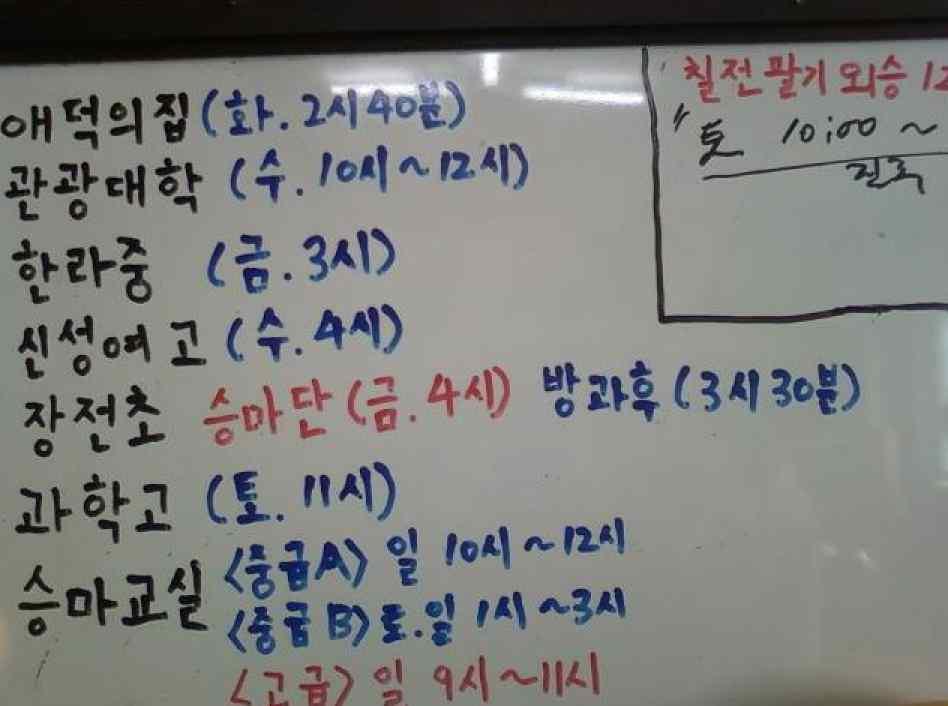 애덕의집 (화. 2시40분)
관광대학 (수. 10시~12시)
한라중 (금. 3시)
신성여고 (수. 4시)
장전초 승마단 (금. 4시) 방과후 (3시30분)
과학고 (토. 11시)
승마교실 <중급A> 일 10시~12시
<중급B> 토.일 1시~3시
<고급> 일 9시~11시
칠전팔기 외승
" 토 10:00 ~